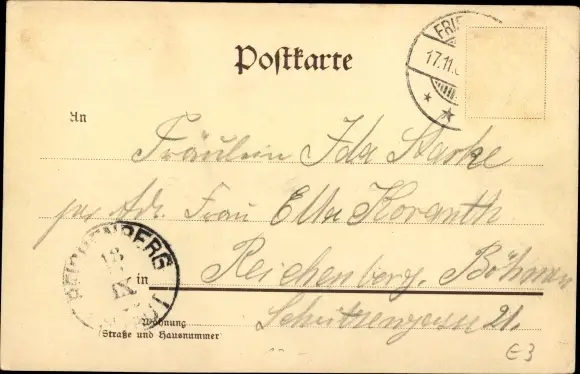 Postkarte
FRIE
17.11.
An
Fräulein Ida Starke
per Adr. Frau Ella Horanth
REICHENBERG
18
IX
in Reichenberg, Böhmen
Schützengasse 21.
Wohnung
(Straße und Hausnummer)
E3